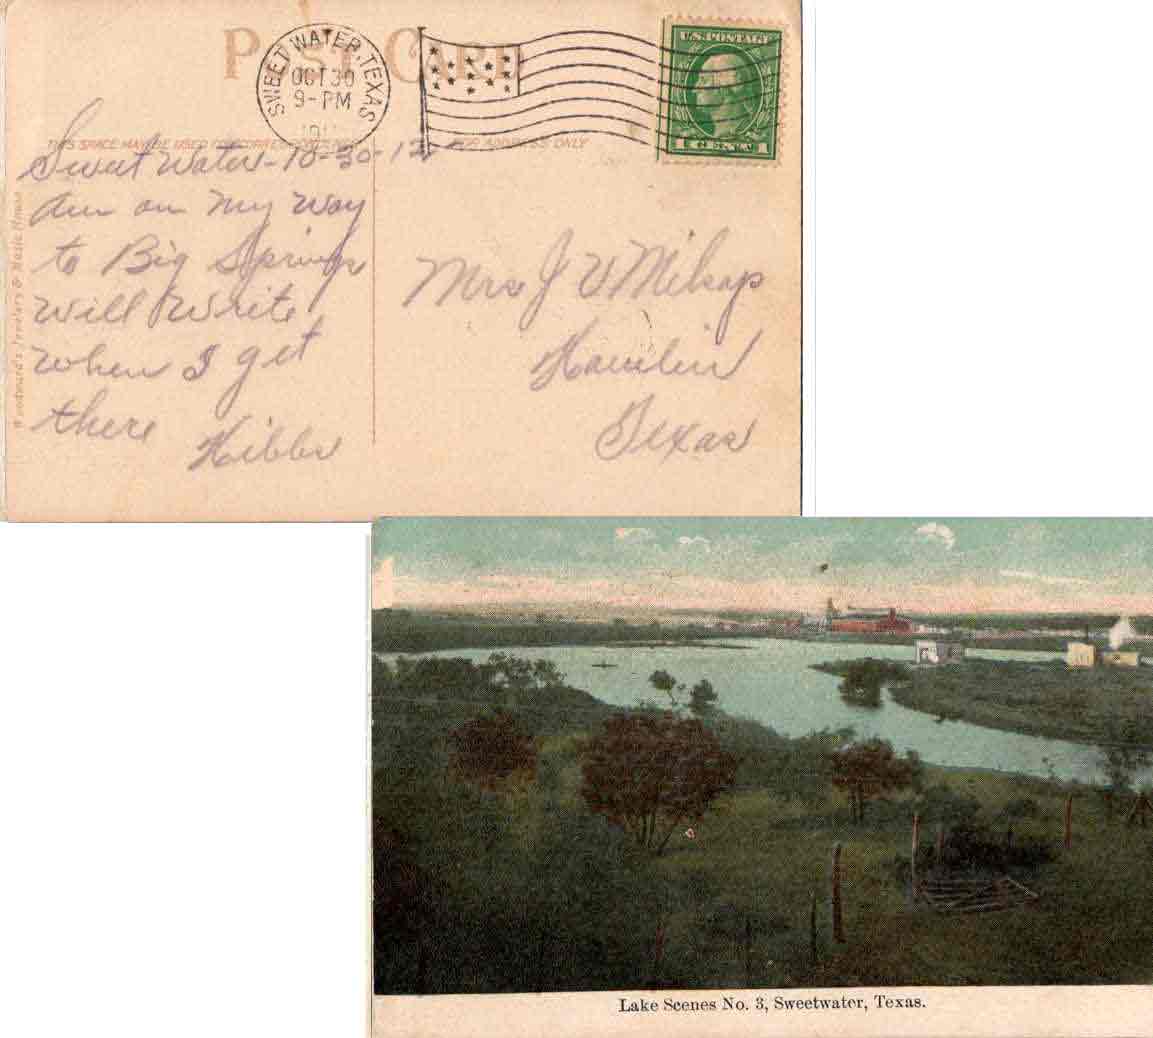 POST CARD
SWEET WATER, TEXAS
OCT 30
9-PM
191
U.S. POSTAGE
1
THIS SPACE MAY BE USED FOR CORRESPONDENCE
FOR ADDRESS ONLY
Woodward's Jewelery & Music House
Sweet Water - 10-30-12
Am on my way
to Big Springs
Will Write
When I get
there
Hibbs
Mrs J V Milsap
Hamlin
Texas
Lake Scenes No. 3, Sweetwater, Texas.